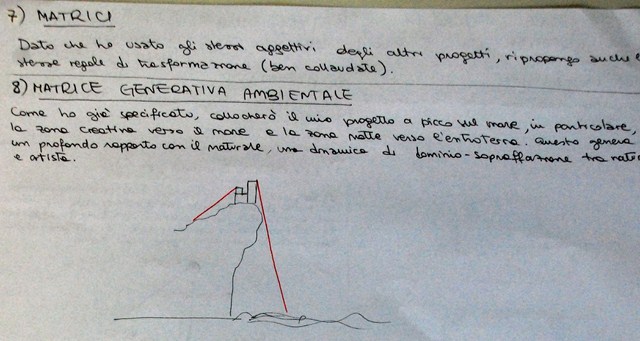 7) MATRICI
Dato che ho usato gli stessi aggettivi degli altri progetti, ripropongo anche
stesse regole di trasformazione (ben collaudate).
8) MATRICE GENERATIVA AMBIENTALE
Come ho già specificato, collocherò il mio progetto a picco sul mare, in particolare
la zona creativa verso il mare e la zona notte verso l'entroterra. Questo genera
un profondo rapporto con il naturale, una dinamica di dominio-sopraffazione tra
e artista.